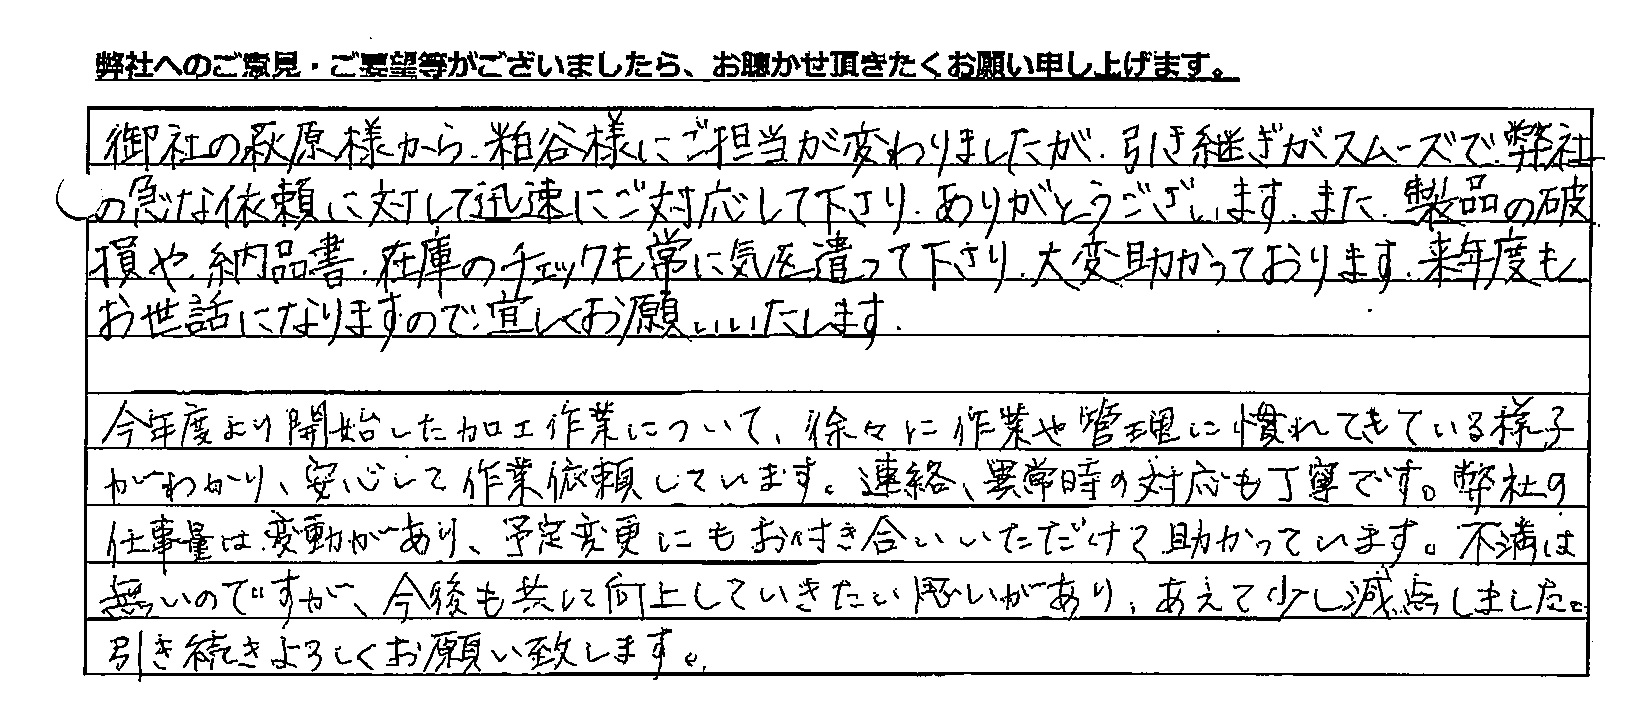 弊社へのご意見・ご要望等がございましたら、お聴かせ頂きたくお願い申し上げます。
御社の萩原様から、粕谷様にご担当が変わりましたが、引き継ぎがスムーズで、弊社
の急な依頼に対して迅速にご対応して下さり、ありがとうございます。また、製品の破
損や、納品書、在庫のチェックも常に気を遣って下さり、大変助かっております。来年度も
お世話になりますので、宜しくお願いいたします。
今年度より開始した加工作業について、徐々に作業や管理に慣れてきている様子
がわかり、安心して作業依頼しています。連絡、異常時の対応も丁寧です。弊社の
仕事量は変動があり、予定変更にもお付き合いいただけて助かっています。不満は
無いのですが、今後も共に向上していきたい思いがあり、あえて少し減点しました。
引き続きよろしくお願い致します。